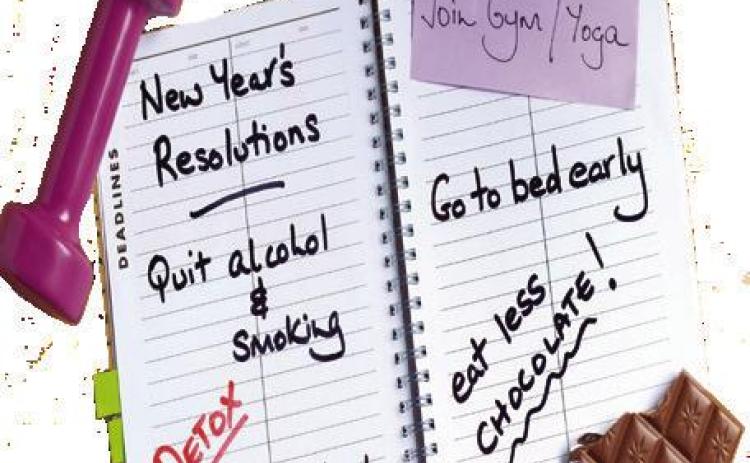 Join Gym / Yoga
New Year's
Resolutions
DEADLINES
Quit alcohol
&
Smoking
DETOX
Go to bed early
eat less
CHOCOLATE!